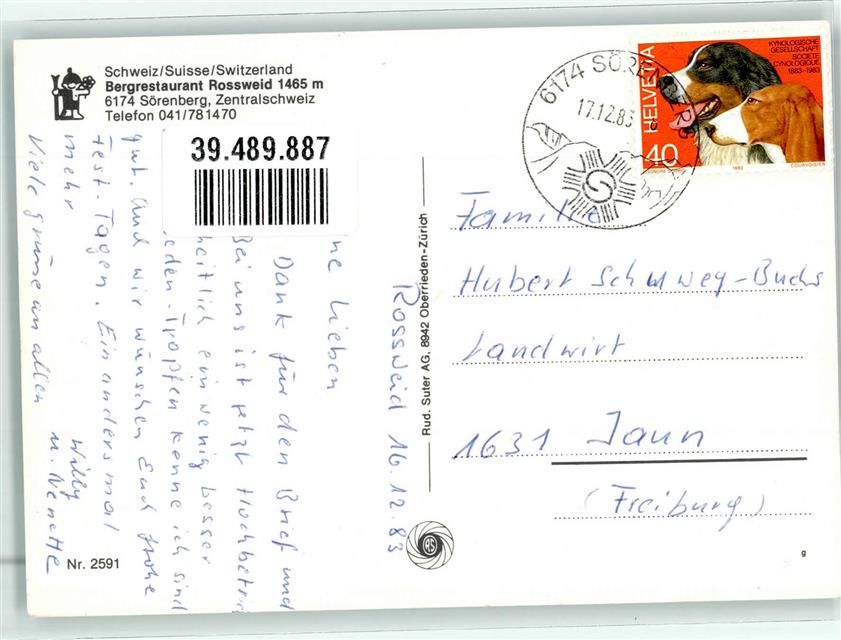 Schweiz/Suisse/Switzerland
Bergrestaurant Rossweid 1465 m
6174 Sörenberg, Zentralschweiz
Telefon 041/781470
39.489.887
Rossweid 16.12.83
ne Lieben
Dank für den Brief und
Bei uns ist jetzt Hochbetri
heitlich ein wenig besser
eden-Tropfen kenne ich sind
gut. Und wir wünschen Euch frohe
Fest-Tagen. Ein andersmal
mehr
Willy
Viele grüsse an allen
u. Nenette
Nr. 2591
Rud. Suter AG, 8942 Oberrieden-Zürich
RS
6174 SÖRENBERG
17.12.83
HELVETIA
KYNOLOGISCHE
GESELLSCHAFT
SOCIETE
CYNOLOGIQUE
1883–1983
40
1983
COURVOISIER
Familie
Hubert Schuwey-Buchs
Landwirt
1631 Jaun
(Freiburg)
g